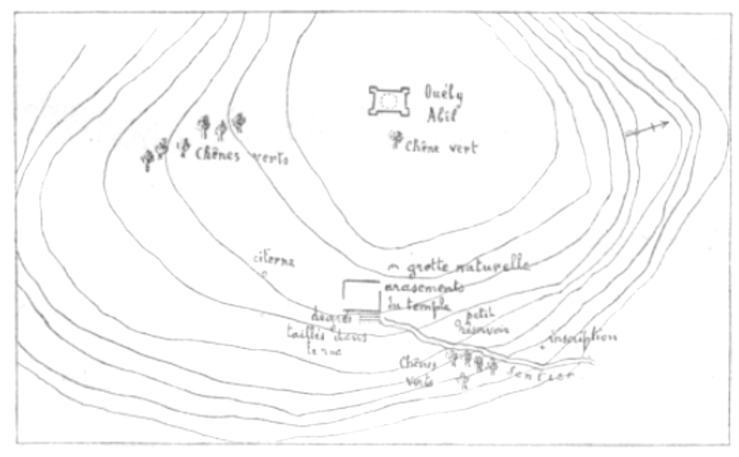 Ouély
Abil
Chêne vert
Chênes verts
citerne
grotte naturelle
arasements
du temple
degrés
taillés dans
le roc
petit
réservoir
inscription
Chênes
verts
Sentier